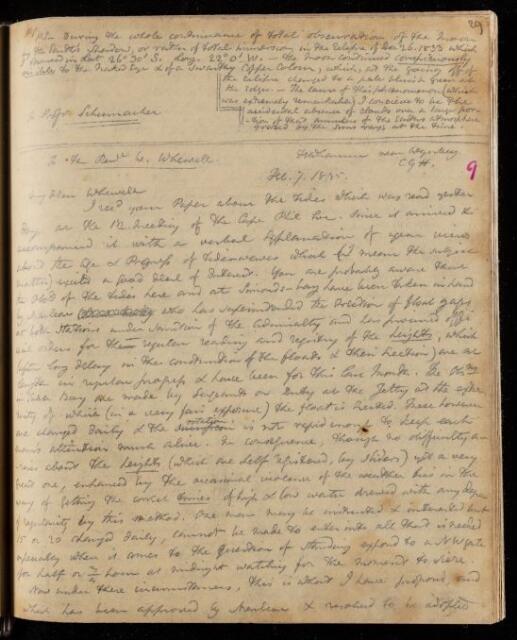 29
During the whole continuance of total obscuration of the Moon
in the Earth's Shadow, or rather of total immersion, in the Eclipse of Dec 26. 1833 which
I observed in Lat. 26° 30' S. Long. 22° 0' W. — the moon continued conspicuously
visible to the Naked Eye & of a Swarthy Copper Colour, which, at the going off of
the Eclipse changed to a pale blueish green at
the edges. — The cause of this phaenomenon (which
was extremely remarkable) I conceive to be the
accidental absence of clouds over a large portion
of that annulus of the Earth's atmosphere
grazed by the Suns rays at the time.
To Profr Schumacher
To the Revd W. Whewell.
Feldhausen near Wynberg
C.G.H.
9
Feb. 7. 1835.
My dear Whewell
I read your Paper about the Tides which was read yester
day at the Meeting of the Cape Phil Soc. Since it arrived &
accompanied it with a verbal Explanation of your views
about the age & Progress of Tidewaves which (I mean the subject
matter) excited a good deal of Interest. You are probably aware that
the Obsns of the Tides here and at Simons-bay have been taken in hand
by Maclear who has superintended the Erection of float gages
at both Stations under Sanction of the Admiralty and has procured offi
cial orders for the regular reading and registry of the heights, which
after long delay in the construction of the floats & their Erection) are at
length in regular progress & have been for this last Month. The Obsns
in Table Bay are made by Sergeants on Duty at the Jetty at the extre
mity of which (in a very fair exposure) the float is erected. These however
are changed daily & the rotation is not rapid enough to keep each
mans attention much alive. In consequence, though no difficulty a-
rises about the heights (which are self registered, by sliders) yet a very
great one, enhanced by the occasional violence of the weather lies in the
way of getting the correct times of high & low water observed with any degree
of regularity by this method. One man may be instructed & interested but
15 or 20 changed daily, cannot be made to enter into all that is needed
especially when it comes to the Question of Standing exposed to a NW gale
for half or 3/4 hour at midnight watching for the moment to seize.
Now under these circumstances, this is what I have proposed and
which has been approved by Maclear & resolved to be adopted